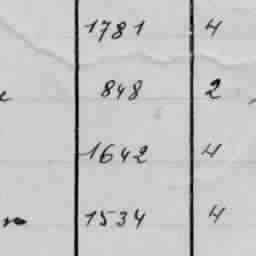 1781 4
848 2
1642 4
1534 4